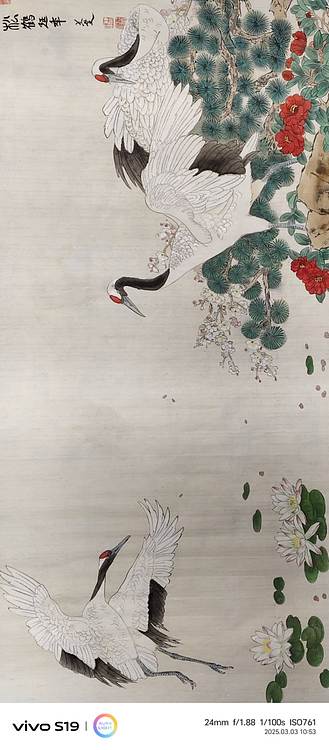 松鹤延年
vivo S19
AURA LIGHT
24mm f/1.88 1/100s ISO761
2025.03.03 10:53